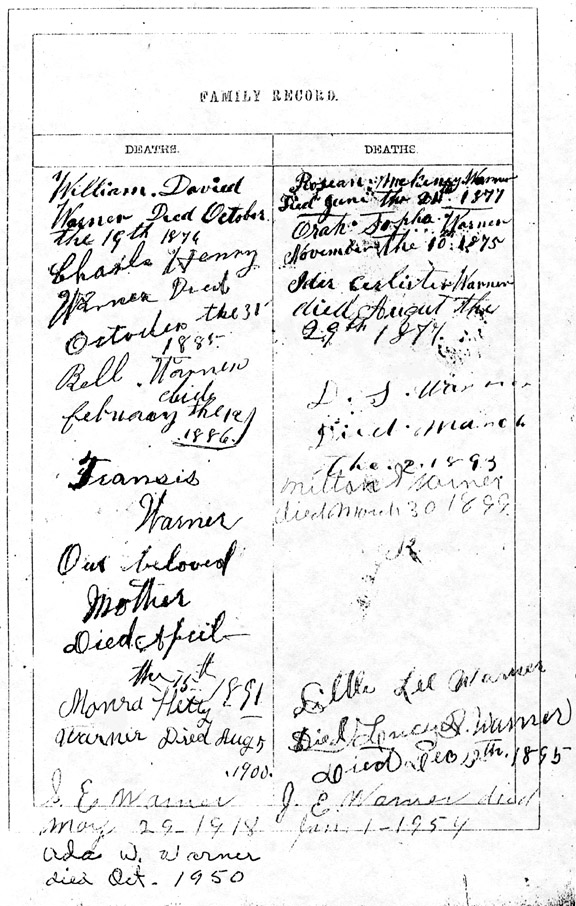 FAMILY RECORD.
DEATHS.
William. Davied
Warner Died October
the 19th 1876
Charls Henny
Warner Died
October the 31
1885
Bell. Warner
died
february the 19
1886
Fransis
Warner
Our beloved
Mother
Died April
the 15th
1891
Monra Hetty
Warner Died Aug 5
.1900.
J. E. Warner
May 29-1918
Ada W. Warner
died Oct. 1950
DEATHS.
Rosean Mckiney Warner
Died June the 1877
Orah Sopha Warner
November the 10 1875
Ider Warner
died August the
29th 1877
D. S. Warner
Died March
the 2. 1893
Milton Warner
died March 30 1899
Lee Warner
Died Warner
Died 1895
J. E. Warner died
Jan. 1-1954